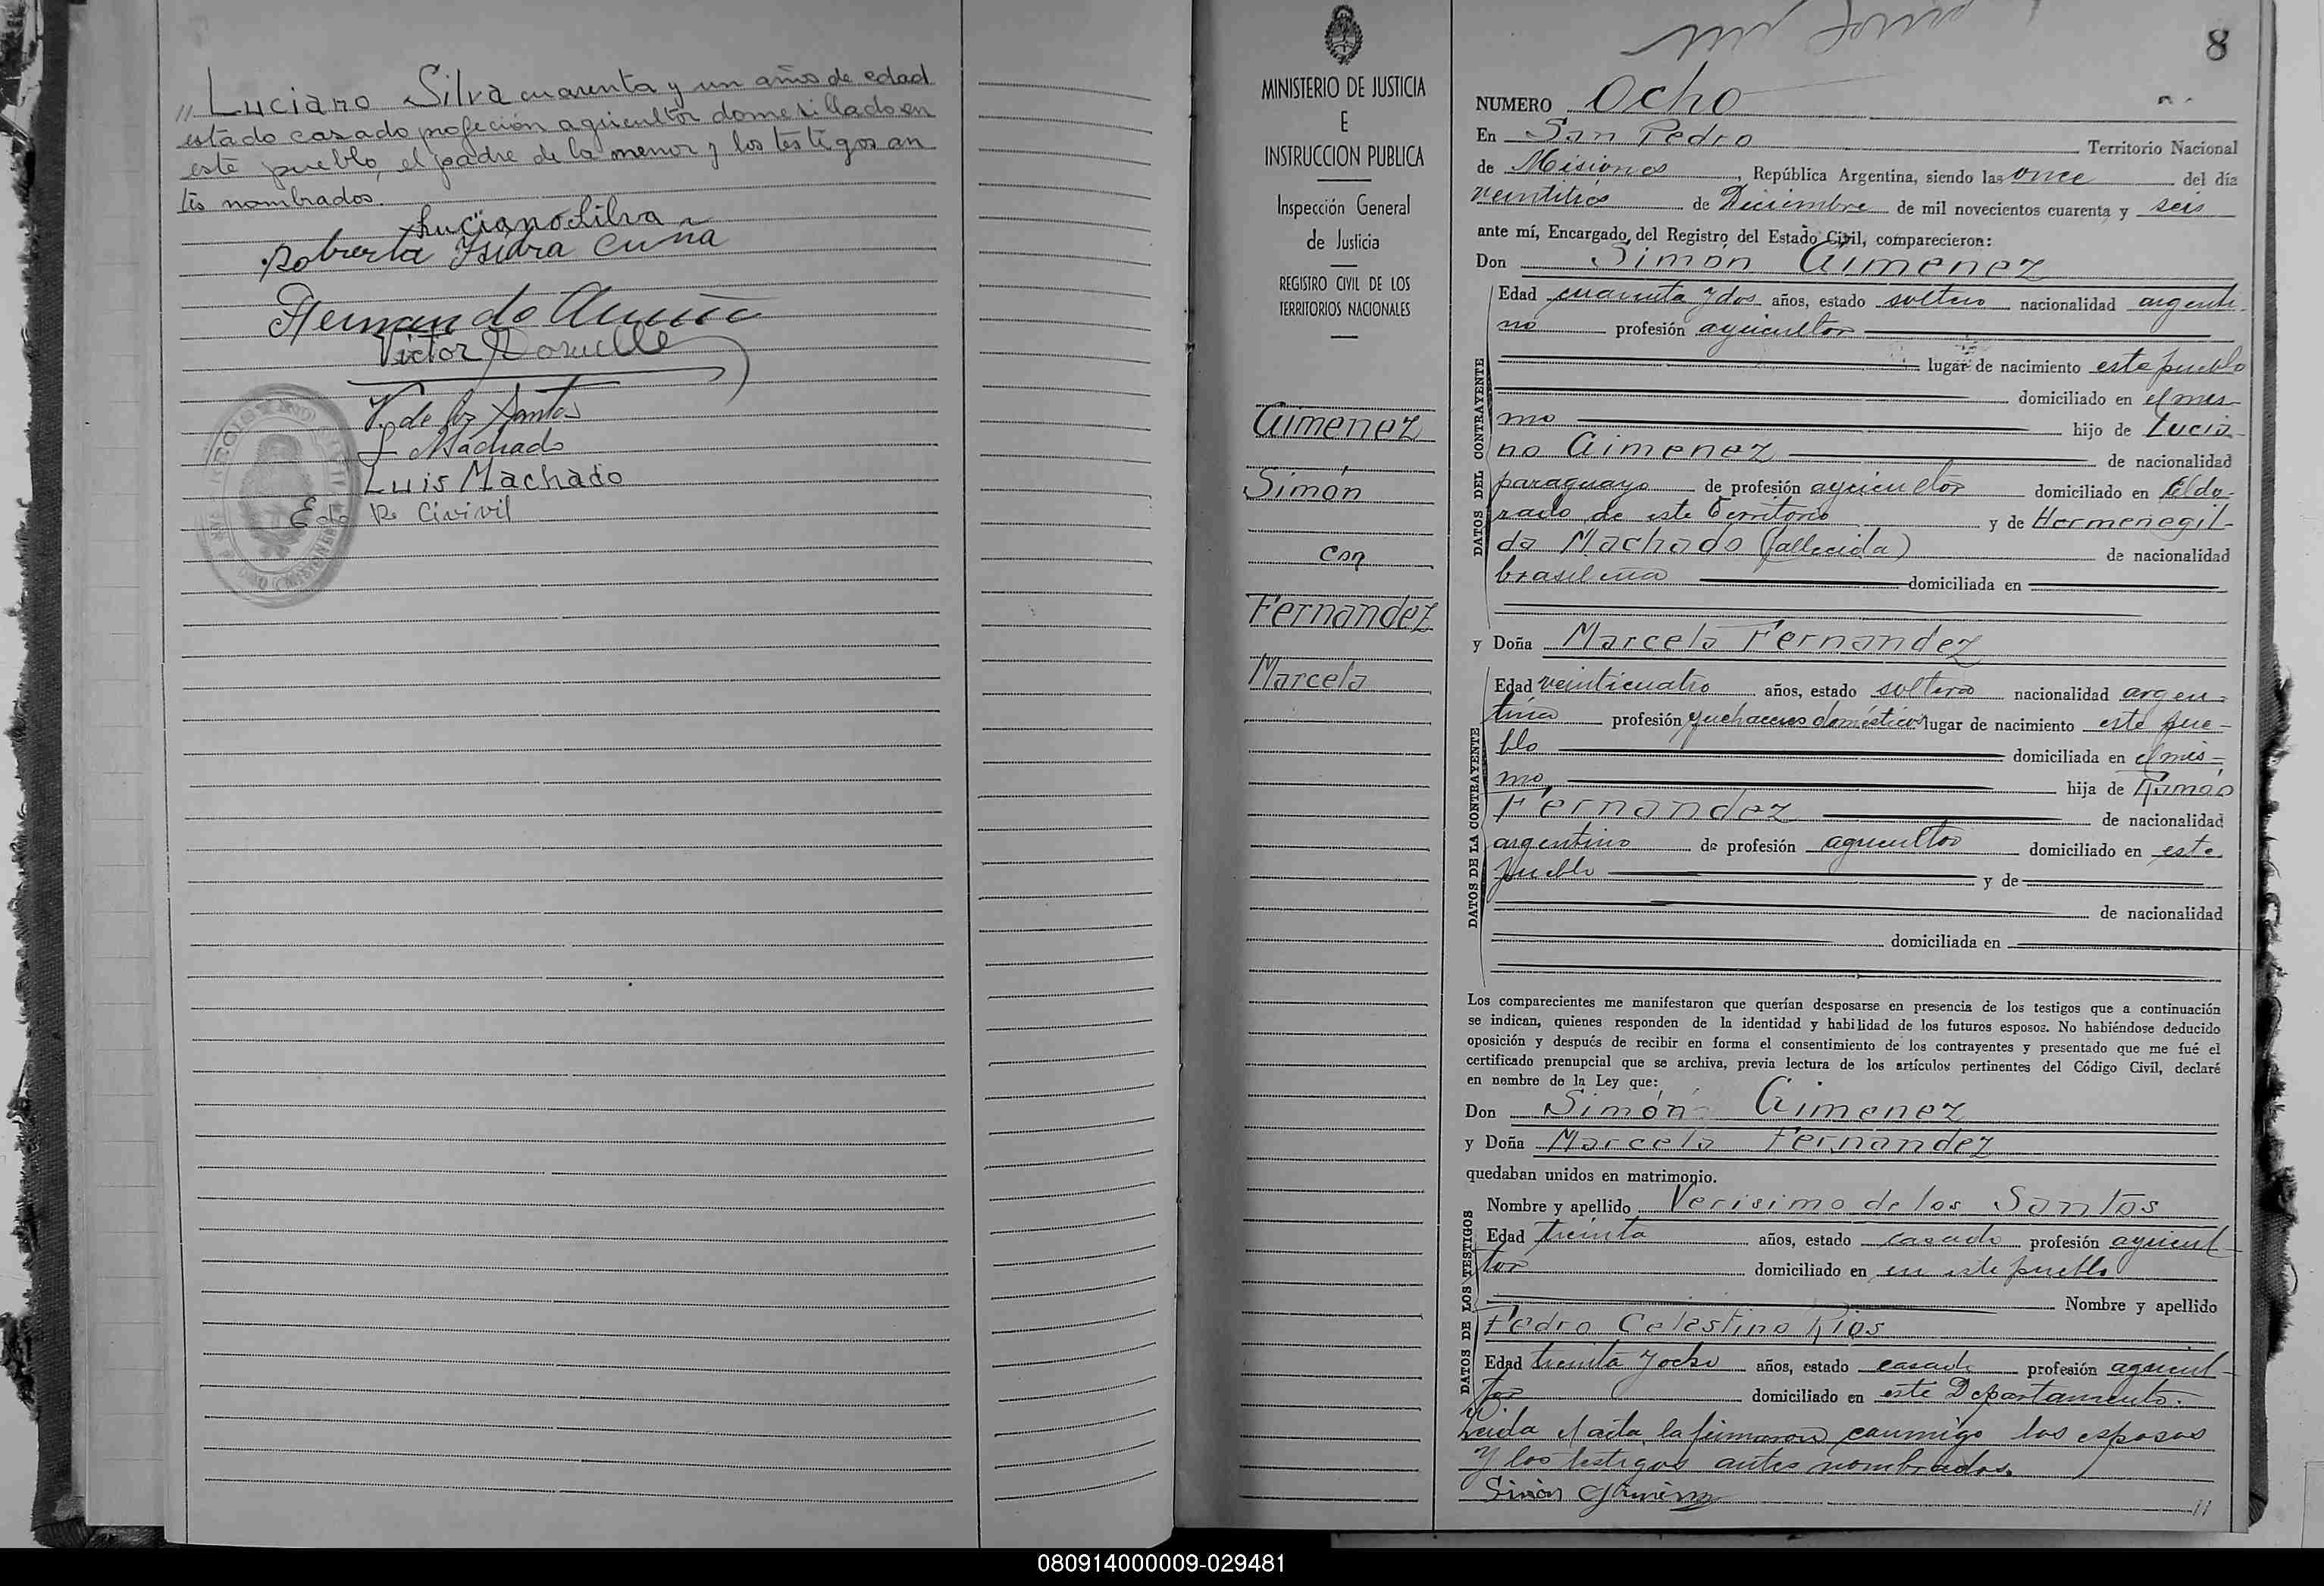 " Luciano Silva cuarenta y un años de edad
estado casado profeción agricultor domesillado en
este pueblo, el padre de la menor y los testigos an
tes nombrados.
Luciano Silva
Roberta Isidra Cuña
Hernando
Victor
V. de los Santos
L Machado
Luis Machado
Edo R. Civivil
MINISTERIO DE JUSTICIA
E
INSTRUCCION PUBLICA
Inspección General
de Justicia
REGISTRO CIVIL DE LOS
TERRITORIOS NACIONALES
Gimenez
Simón
con
Fernandez
Marcela
8
NUMERO Ocho
En San Pedro Territorio Nacional
de Misiones, República Argentina, siendo las once del día
veintitrés de Diciembre de mil novecientos cuarenta y seis
ante mí, Encargado del Registro del Estado Civil, comparecieron:
Don Simón Gimenez
DATOS DEL CONTRAYENTE
Edad cuarenta y dos años, estado soltero nacionalidad argenti-
no profesión agricultor
lugar de nacimiento este pueblo
domiciliado en el mis-
mo hijo de Lucia-
no Gimenez de nacionalidad
paraguayo de profesión agricultor domiciliado en Eldo-
rado de este Territorio y de Hermenegil-
da Machado (fallecida) de nacionalidad
brasileña domiciliada en
y Doña Marcela Fernandez
DATOS DE LA CONTRAYENTE
Edad veinticuatro años, estado soltera nacionalidad argen-
tina profesión quehaceres domésticos lugar de nacimiento este pue-
blo domiciliada en el mis-
mo hija de Ramón
Fernandez de nacionalidad
argentino de profesión agricultor domiciliado en este
pueblo y de
de nacionalidad
domiciliada en
Los comparecientes me manifestaron que querían desposarse en presencia de los testigos que a continuación
se indican, quienes responden de la identidad y habilidad de los futuros esposos. No habiéndose deducido
oposición y después de recibir en forma el consentimiento de los contrayentes y presentado que me fué el
certificado prenupcial que se archiva, previa lectura de los artículos pertinentes del Código Civil, declaré
en nombre de la Ley que:
Don Simón Gimenez
y Doña Marcela Fernandez
quedaban unidos en matrimonio.
DATOS DE LOS TESTIGOS
Nombre y apellido Verisimo de los Santos
Edad treinta años, estado casado profesión agricul-
tor domiciliado en en este pueblo
Nombre y apellido
Pedro Celestino Rios
Edad treinta y ocho años, estado casado profesión agricul-
tor domiciliado en este Departamento.
Leida el acta, la firmaron conmigo los esposos
y los testigos antes nombrados.
Simón Gimenez "
080914000009-029481